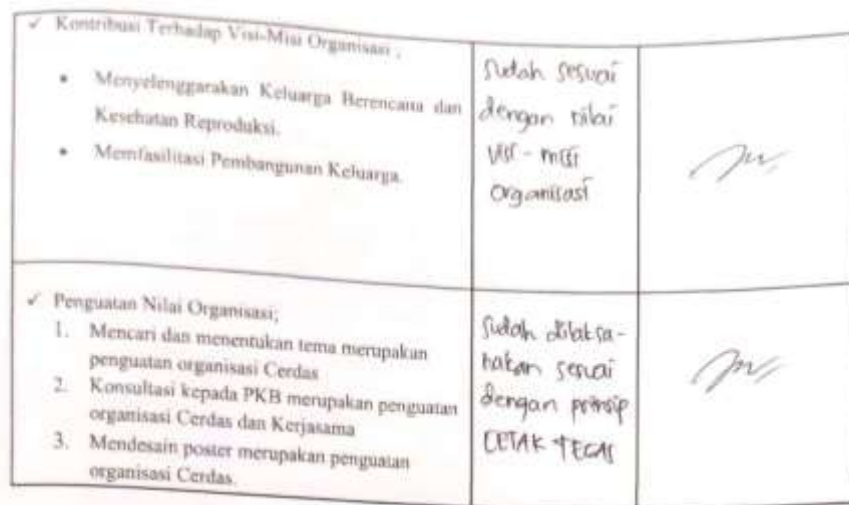 ✓ Kontribusi Terhadap Visi-Misi Organisasi ;
• Menyelenggarakan Keluarga Berencana dan
Kesehatan Reproduksi.
• Memfasilitasi Pembangunan Keluarga.
Sudah sesuai
dengan nilai
visi - misi
organisasi
✓ Penguatan Nilai Organisasi;
1. Mencari dan menentukan tema merupakan
penguatan organisasi Cerdas
2. Konsultasi kepada PKB merupakan penguatan
organisasi Cerdas dan Kerjasama
3. Mendesain poster merupakan penguatan
organisasi Cerdas.
Sudah dilaksa-
nakan sesuai
dengan prinsip
CETAK TEGAS